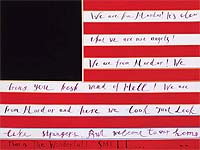 We are from Mordor! It's clear
that we are not angels!
We are from Mordor! We
bring you fresh wind of Hell! We are
from Mordor and here we Look just Look
like strangers. And welcome to our home
Much the Wonderful SMELL